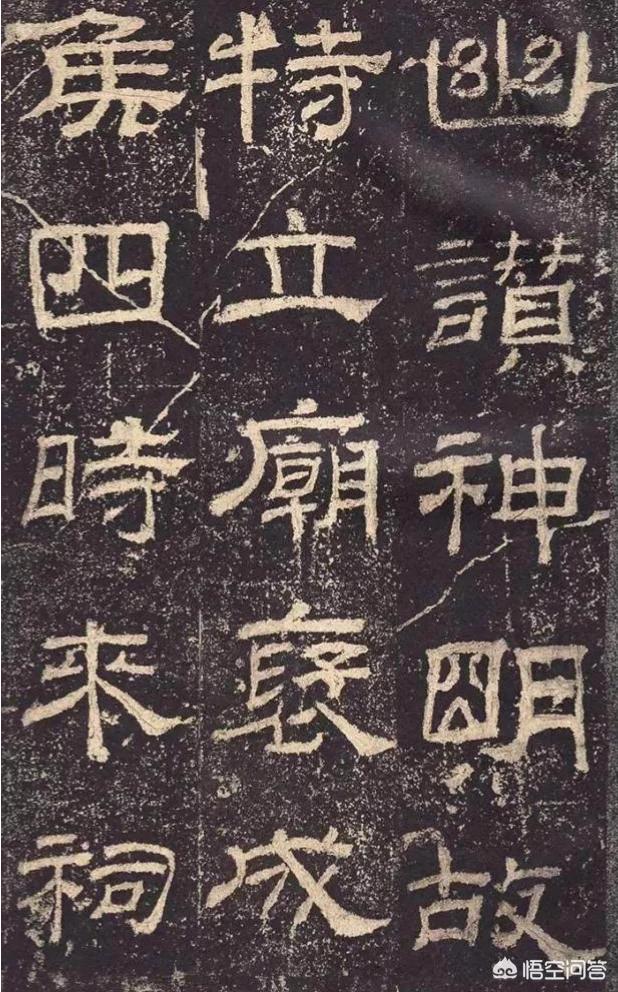 幽讃神明故
特立廟褒成
侯四時来祠
悟空问答